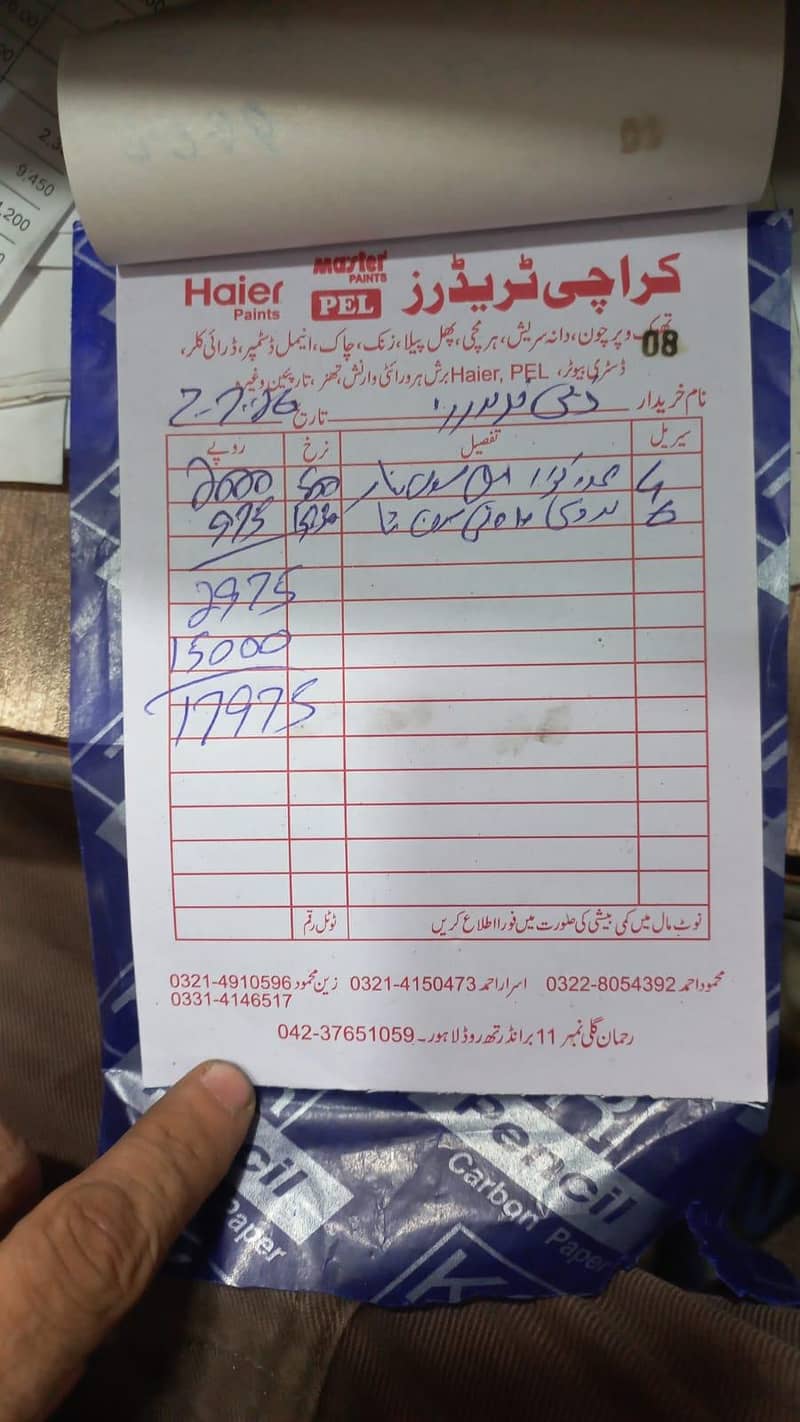 9,450
,200
Haier Paints
Master PAINTS
PEL
کراچی ٹریڈرز
تھوک و پرچون، دانہ سریش، ہرمچی، پھل پیلا، زنک، چاک، انیمل ڈسٹمپر، ڈرائی کلر،
08
ڈسٹری بیوٹر، Haier, PEL برش ہر ورائٹی وارنش، تھنر، تارپین وغیرہ
نام خریدار تاریخ 2-7-26
سیریل تفصیل نرخ روپے
4 500 2000
6 975
2975
15000
17975
نوٹ مال میں کمی بیشی کی صورت میں فورا اطلاع کریں ٹوٹل رقم
محمود احمد 0322-8054392 اسرار احمد 0321-4150473 زین محمود 0321-4910596
0331-4146517
رحمان گلی نمبر 11 برانڈرتھ روڈ لاہور۔ 042-37651059
Pencil
Carbon Paper
cil
Paper
K